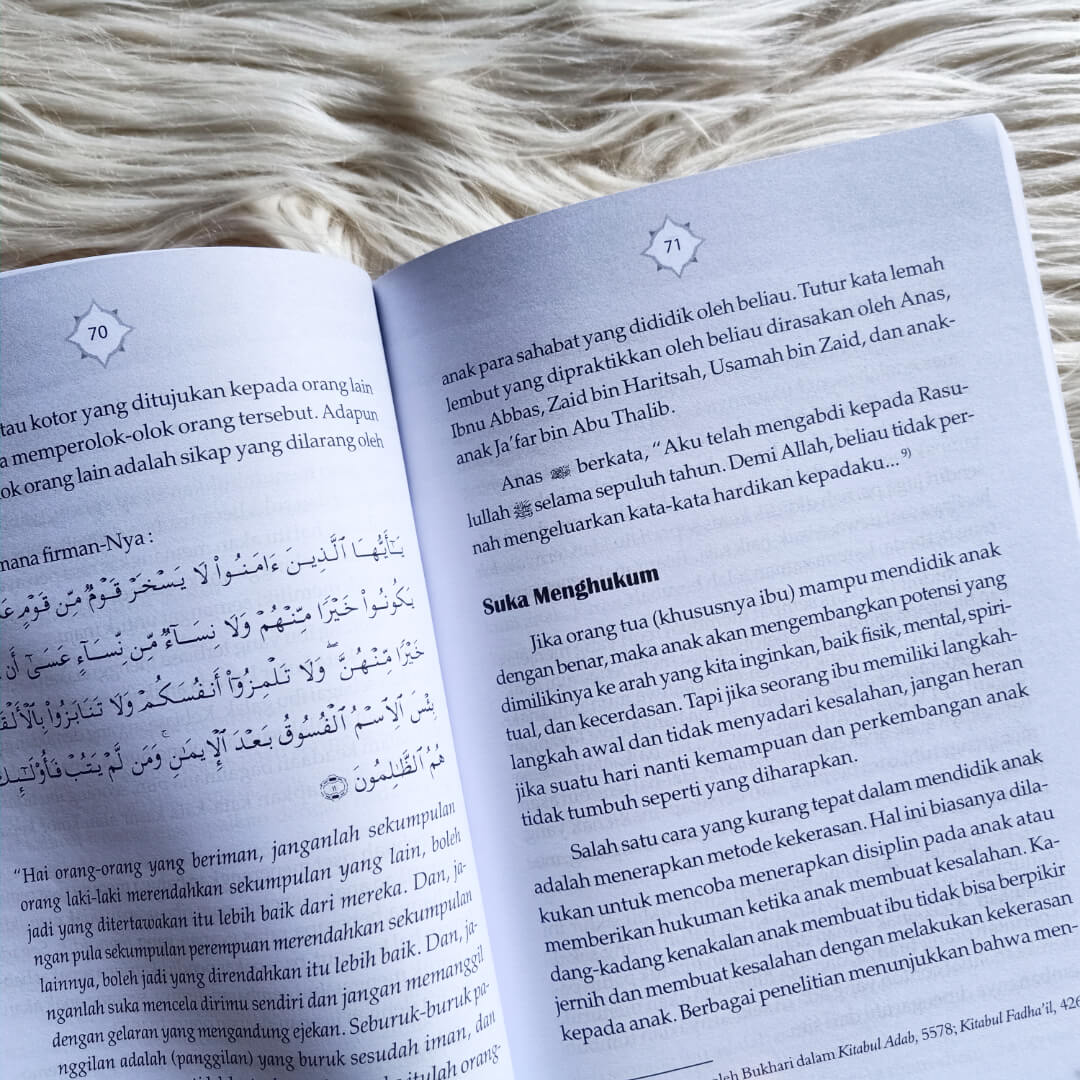 70
tau kotor yang ditujukan kepada orang lain
a memperolok-olok orang tersebut. Adapun
ok orang lain adalah sikap yang dilarang oleh
mana firman-Nya :
يَٰٓأَيُّهَا ٱلَّذِينَ ءَامَنُوا۟ لَا يَسْخَرْ قَوْمٌ مِّن قَوْمٍ
يَكُونُوا۟ خَيْرًا مِّنْهُمْ وَلَا نِسَآءٌ مِّن نِّسَآءٍ عَسَىٰٓ أَن
خَيْرًا مِّنْهُنَّ ۖ وَلَا تَلْمِزُوٓا۟ أَنفُسَكُمْ وَلَا تَنَابَزُوا۟
بِئْسَ ٱلِٱسْمُ ٱلْفُسُوقُ بَعْدَ ٱلْإِيمَٰنِ ۚ وَمَن لَّمْ يَتُبْ
هُمُ ٱلظَّٰلِمُونَ ١١
“Hai orang-orang yang beriman, janganlah sekumpulan
orang laki-laki merendahkan sekumpulan yang lain, boleh
jadi yang ditertawakan itu lebih baik dari mereka. Dan, ja-
ngan pula sekumpulan perempuan merendahkan sekumpulan
lainnya, boleh jadi yang direndahkan itu lebih baik. Dan, ja-
nganlah suka mencela dirimu sendiri dan jangan memanggil
dengan gelaran yang mengandung ejekan. Seburuk-buruk pa-
nggilan adalah (panggilan) yang buruk sesudah iman, dan
itulah orang-
71
anak para sahabat yang dididik oleh beliau. Tutur kata lemah
lembut yang dipraktikkan oleh beliau dirasakan oleh Anas,
Ibnu Abbas, Zaid bin Haritsah, Usamah bin Zaid, dan anak-
anak Ja’far bin Abu Thalib.
Anas berkata, “Aku telah mengabdi kepada Rasu-
lullah ﷺ selama sepuluh tahun. Demi Allah, beliau tidak per-
nah mengeluarkan kata-kata hardikan kepadaku...” 9)
Suka Menghukum
Jika orang tua (khususnya ibu) mampu mendidik anak
dengan benar, maka anak akan mengembangkan potensi yang
dimilikinya ke arah yang kita inginkan, baik fisik, mental, spiri-
tual, dan kecerdasan. Tapi jika seorang ibu memiliki langkah-
langkah awal dan tidak menyadari kesalahan, jangan heran
jika suatu hari nanti kemampuan dan perkembangan anak
tidak tumbuh seperti yang diharapkan.
Salah satu cara yang kurang tepat dalam mendidik anak
adalah menerapkan metode kekerasan. Hal ini biasanya dila-
kukan untuk mencoba menerapkan disiplin pada anak atau
memberikan hukuman ketika anak membuat kesalahan. Ka-
dang-kadang kenakalan anak membuat ibu tidak bisa berpikir
jernih dan membuat kesalahan dengan melakukan kekerasan
kepada anak. Berbagai penelitian menunjukkan bahwa men-
oleh Bukhari dalam Kitabul Adab, 5578; Kitabul Fadha’il, 426